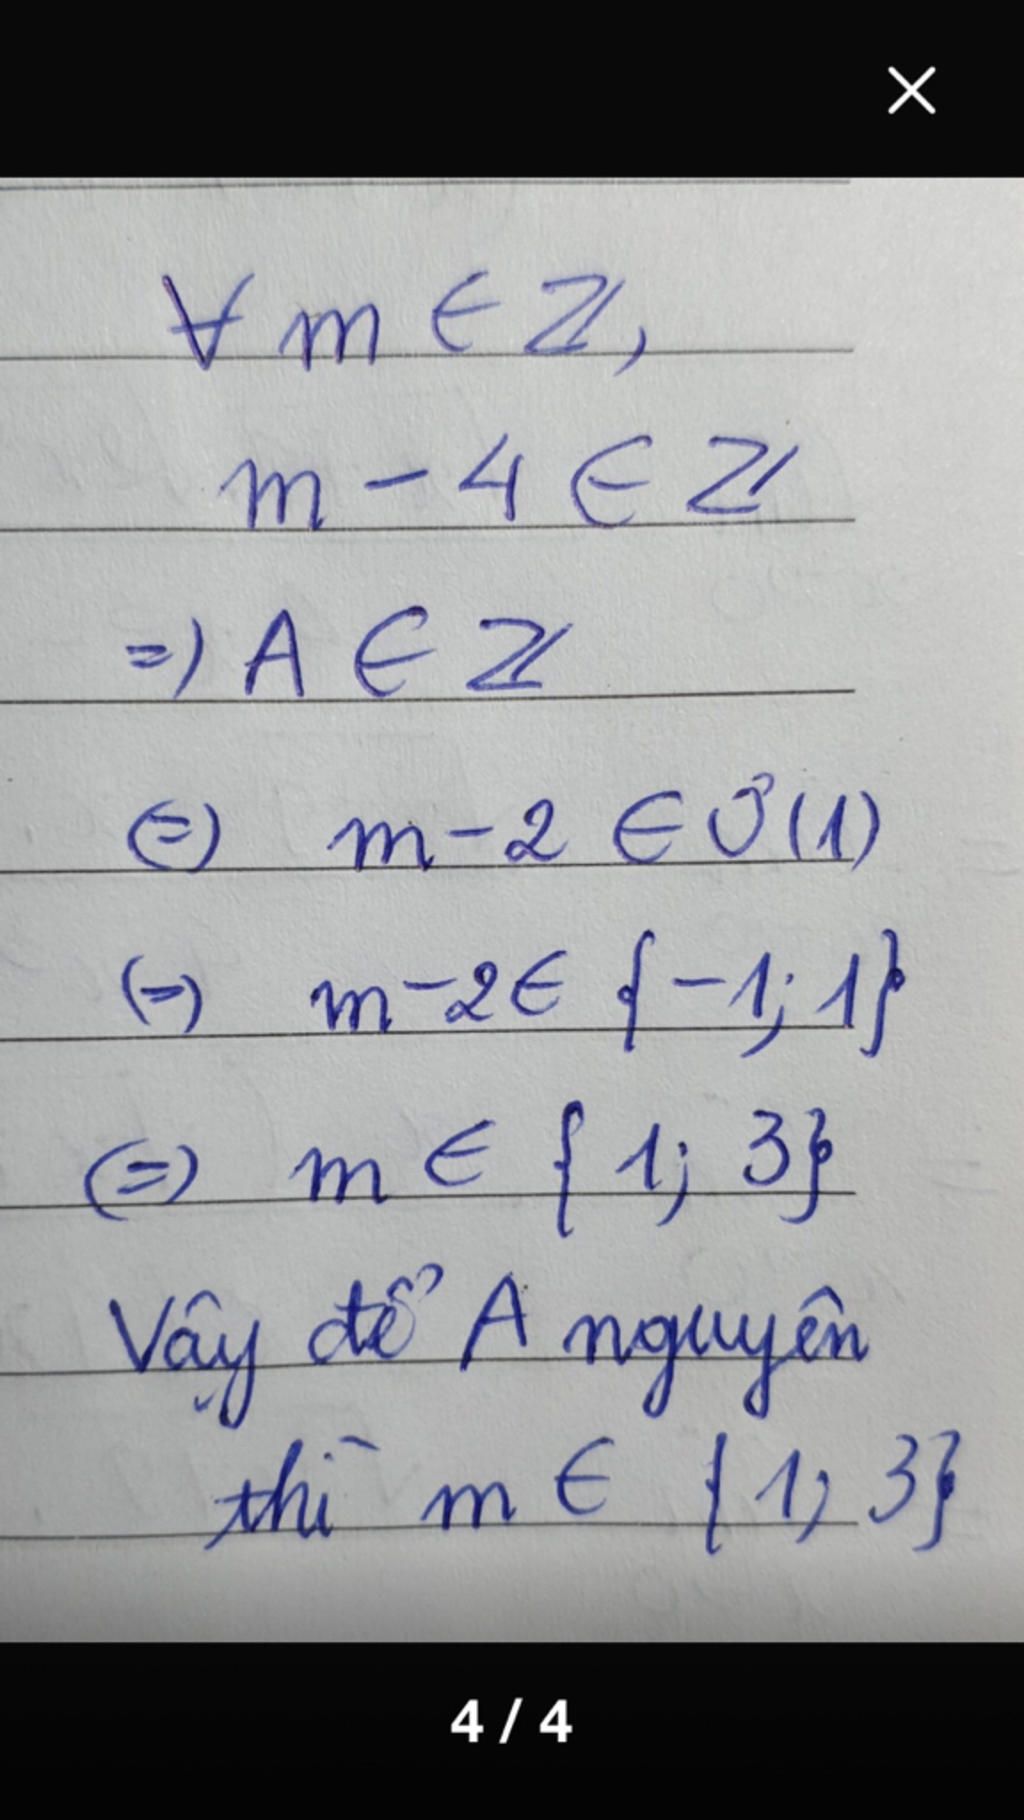 ∀ m ∈ ℤ,
m - 4 ∈ ℤ
=) A ∈ ℤ
(=) m - 2 ∈ Ư(1)
(=) m - 2 ∈ {-1; 1}
(=) m ∈ {1; 3}
Vậy để A nguyên
thì m ∈ {1; 3}
4 / 4